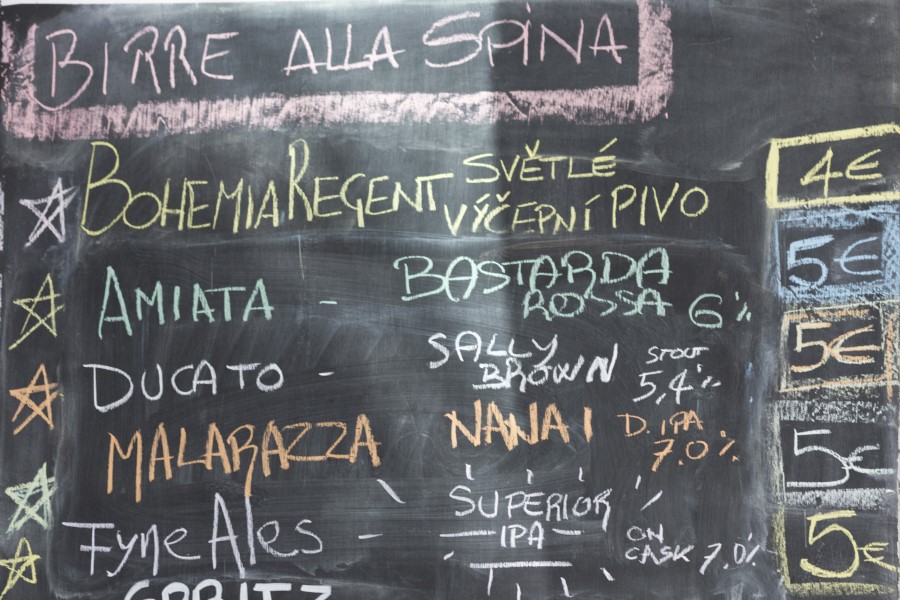 BIRRE ALLA SPINA
BOHEMIA REGENT SVĚTLÉ VÝČEPNÍ PIVO 4€
AMIATA - BASTARDA ROSSA 6% 5€
DUCATO - SALLY BROWN STOUT 5,4% 5€
MALARAZZA NANAI D. IPA 7.0% 5€
Fyne Ales - SUPERIOR IPA ON CASK 7,0% 5€